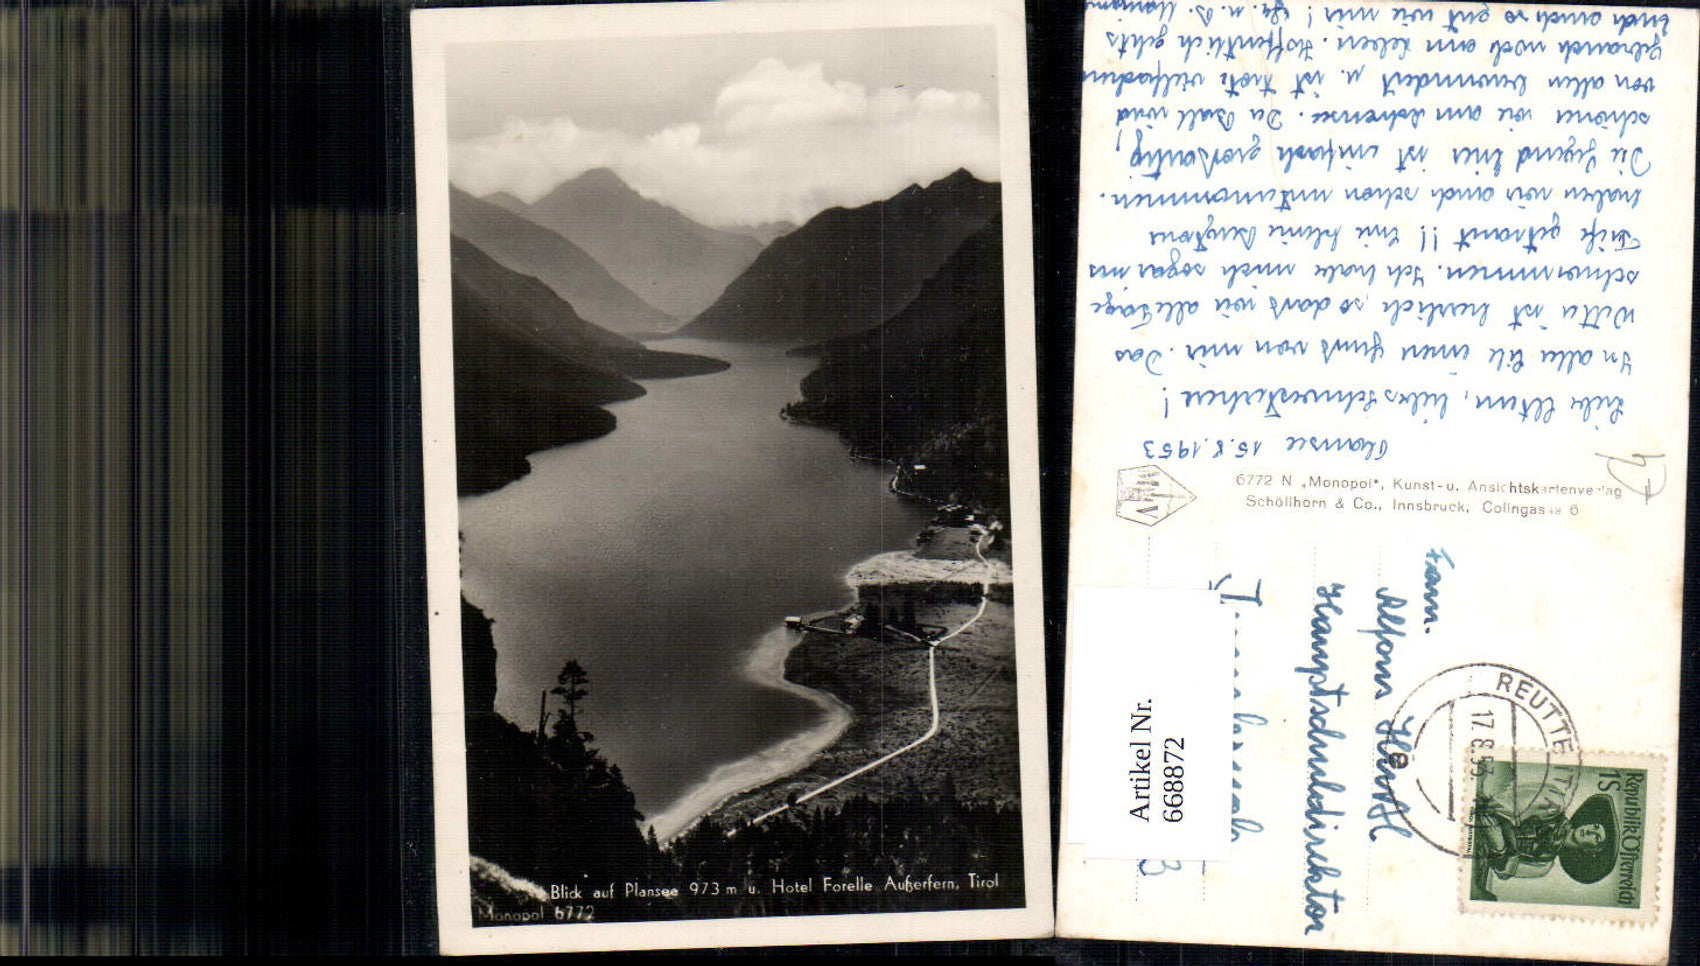 Blick auf Plansee 973 m u. Hotel Forelle Außerfern, Tirol
Monopol 6772
Plansee 15.8.1953
Liebe Eltern, liebes Schwesterchen!
In aller Eile einen Gruß von mir. Das
Wetter ist herrlich, so daß wir alle Tage
schwimmen. Ich habe mich sogar ins
Tiefe getraut!! Eine kleine Bergtour
haben wir auch schon unternommen.
Die Gegend hier ist einfach großartig,
schöner wie am Achensee. Der Ball wird
von allen bewundert u. ist trotz vielfachen
Gebrauch noch am Leben. Hoffentlich gehts
Euch auch so gut wie mir! Gr. u. B.
6772 N „Monopol", Kunst- u. Ansichtskartenverlag
Schöllhorn & Co., Innsbruck, Colingasse 6
Fam.
Alfons
Hauptschuldirektor
Artikel Nr.
668872
REUTTE
17.8.53
Republik Österreich
1S